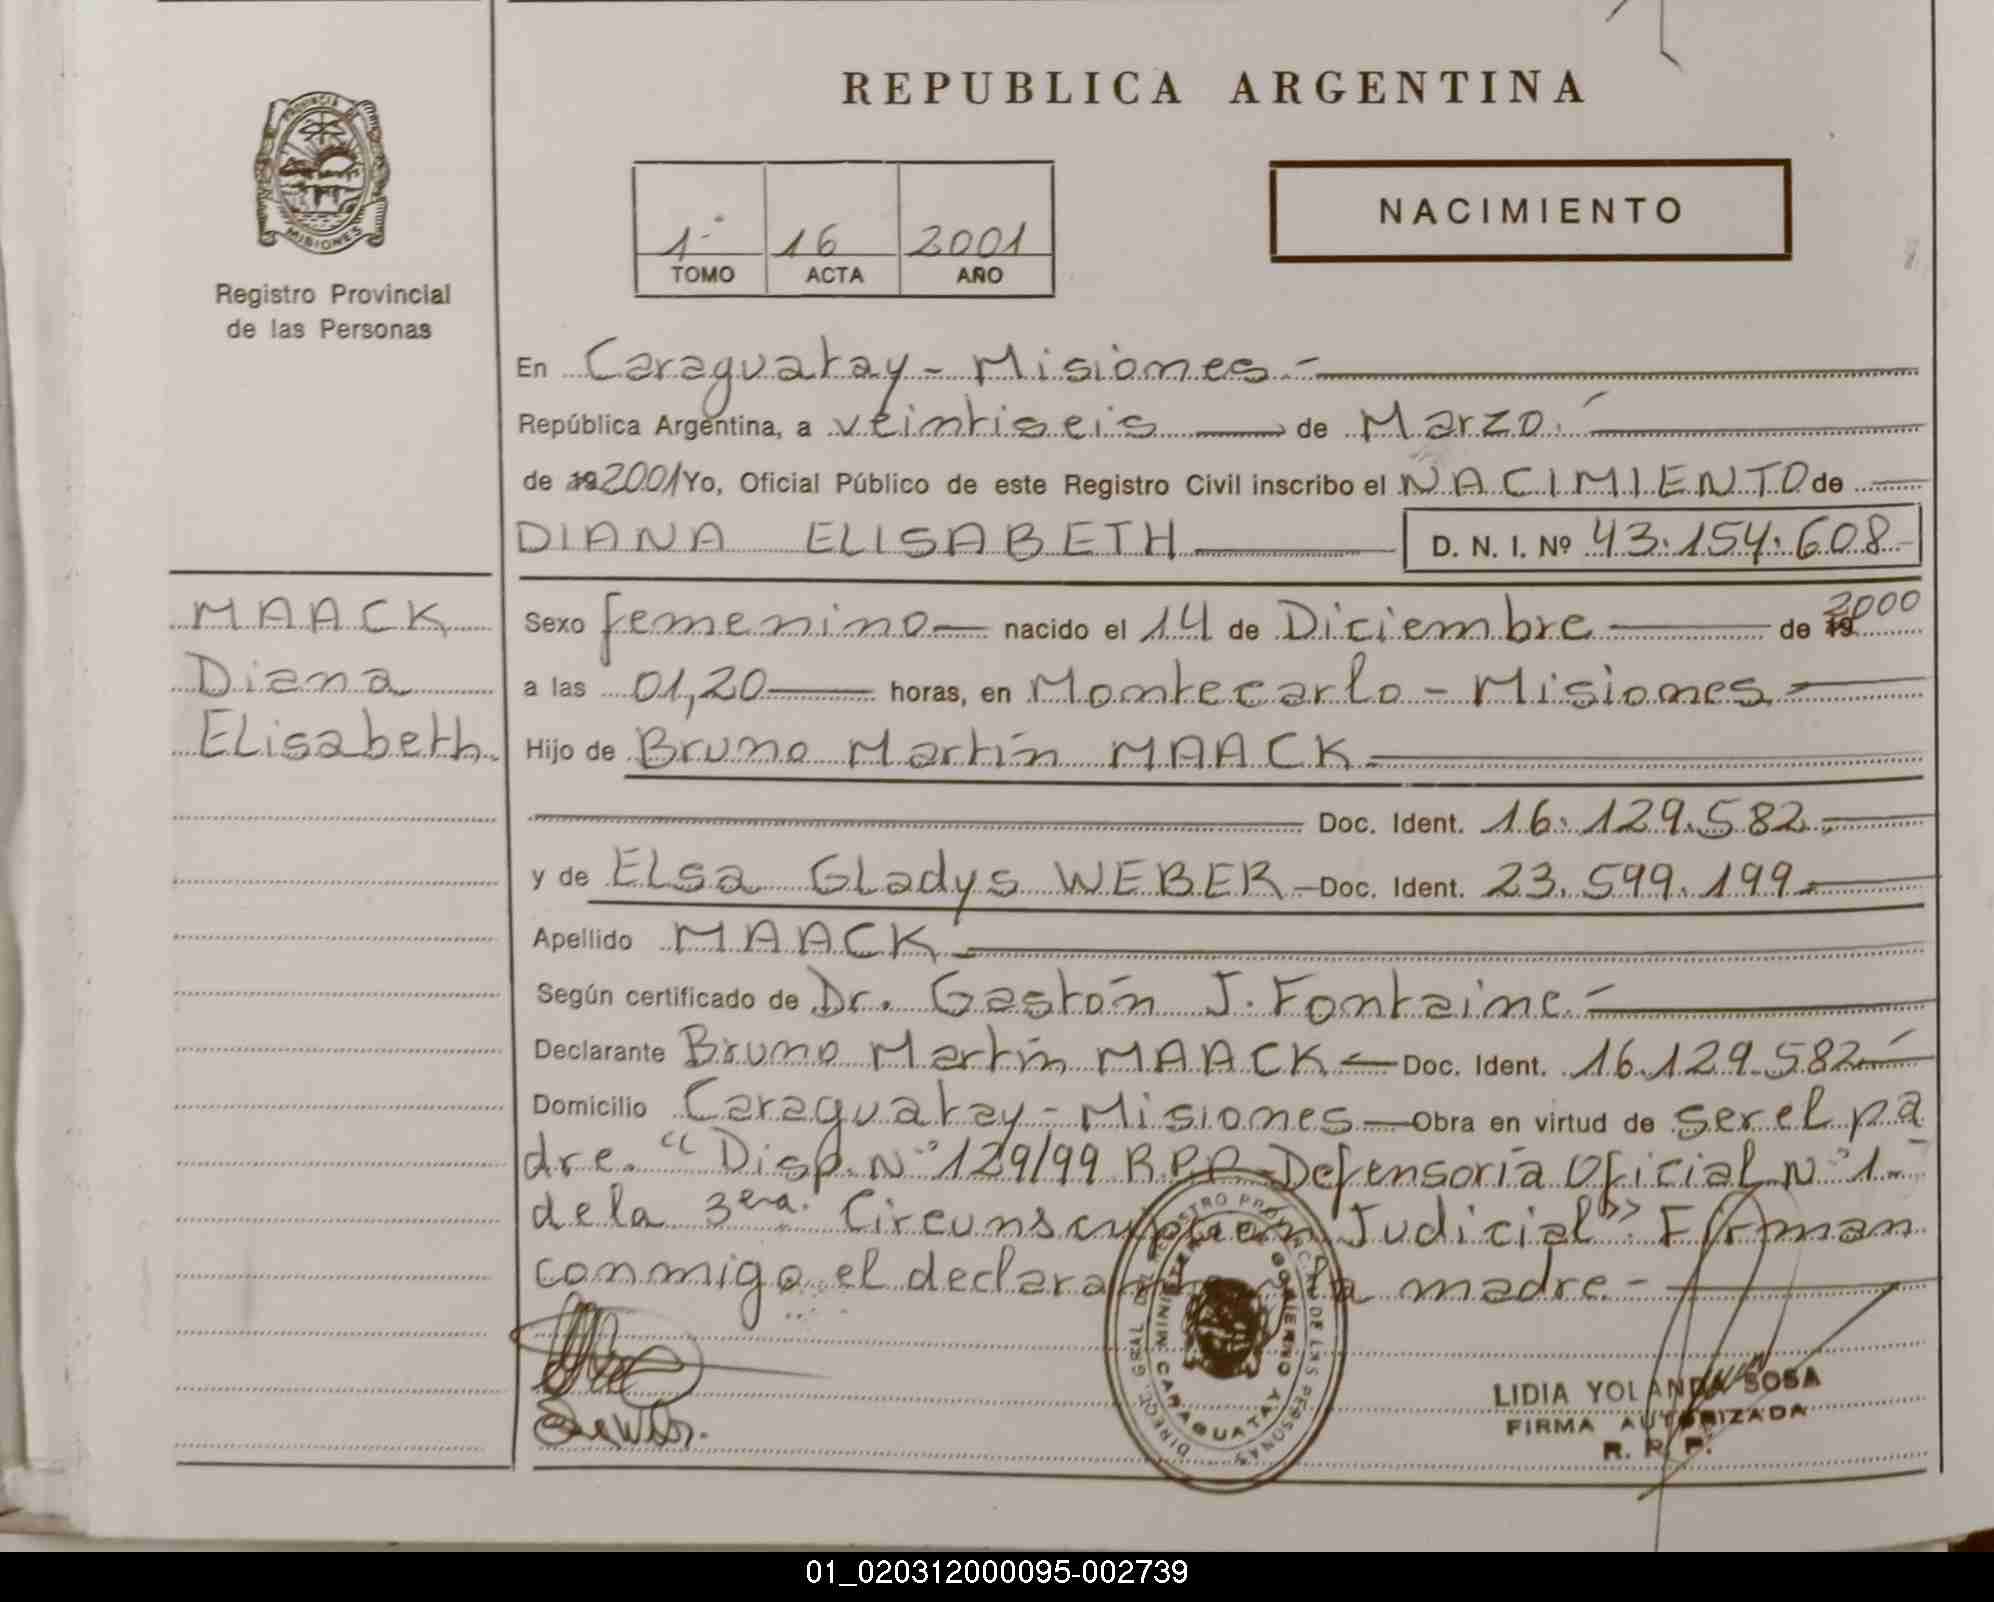 REPUBLICA ARGENTINA
PROVINCIA DE
MISIONES
Registro Provincial
de las Personas
1º 16 2001
TOMO ACTA AÑO
NACIMIENTO
En Caraguatay - Misiones.-
República Argentina, a veintiseis de Marzo.
de 19 2001 Yo, Oficial Público de este Registro Civil inscribo el NACIMIENTO de
DIANA ELISABETH D. N. I. Nº 43.154.608
MAACK
Diana
Elisabeth
Sexo femenino nacido el 14 de Diciembre de 19 2000
a las 01,20 horas, en Montecarlo - Misiones
Hijo de Bruno Martín MAACK
Doc. Ident. 16.129.582
y de Elsa Gladys WEBER Doc. Ident. 23.599.199
Apellido MAACK
Según certificado de Dr. Gastón J. Fontaine.
Declarante Bruno Martín MAACK Doc. Ident. 16.129.582
Domicilio Caraguatay - Misiones Obra en virtud de ser el pa
dre. "Disp. Nº 129/99 R.P.P. Defensoría Oficial Nº 1-
de la 3era. Circunscripción Judicial". Firman
conmigo el declarante y la madre.-
DIRECC. GRAL. DEL REGISTRO PROVINCIAL DE LAS PERSONAS
MINISTERIO DE GOBIERNO
CARAGUATAY
LIDIA YOLANDA SOSA
FIRMA AUTORIZADA
R. P. P.
01_020312000095-002739